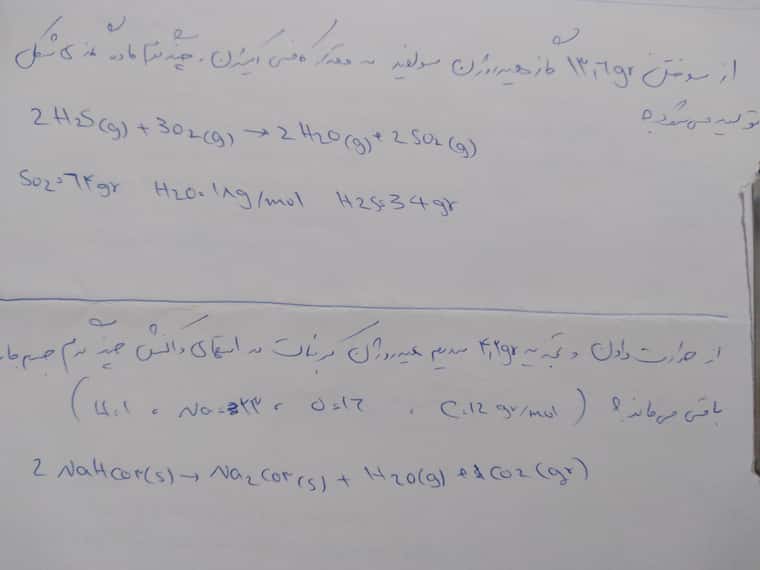 از سوختن ۱۳٫۶gr گاز هیدروژن سولفید به مقدار کافی اکسیژن، چند گرم ماده گازی شکل
تولید می‌شود؟
2H2S(g) + 3O2(g) → 2H2O(g) + 2SO2(g)
SO2=۶۴gr H2O=۱۸g/mol H2S=34gr
از حرارت دادن و تجزیه ۴٫۲gr سدیم هیدروژن کربنات در انتهای واکنش چند گرم جسم جامد
باقی می‌ماند؟ (H=1 ، Na=۲۳ ، O=1۶ ، C=12 gr/mol)
2 NaHCO۳(s) → Na2CO۳(s) + H2O(g) + CO2(gr)